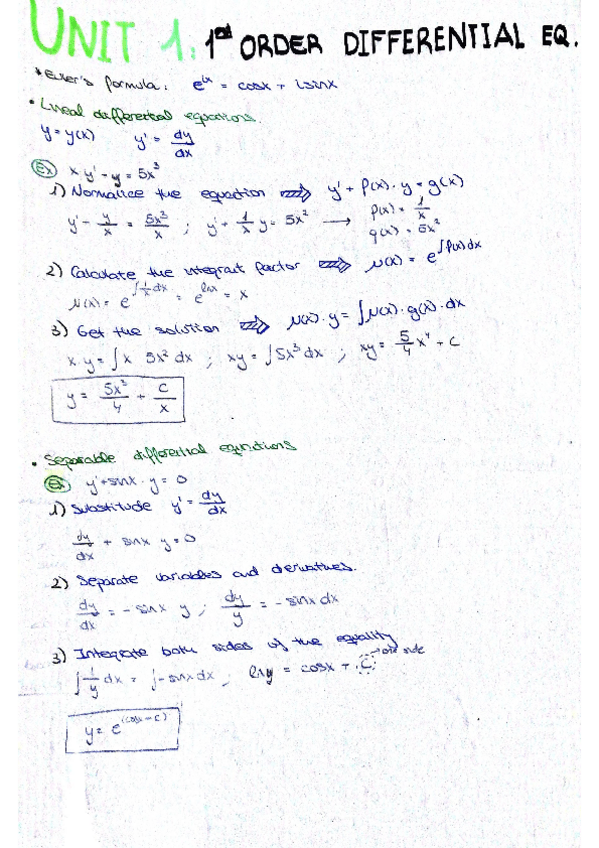 UNIT 1: 1st ORDER DIFFERENTIAL EQ.
* Euler's formula: e^ix = cosx + isinx
• Lineal differential equations.
y = y(x) y' = dy/dx
Ex x·y' - y = 5x³
1) Normalice the equation ⇒ y' + P(x)·y = g(x)
y' - y/x = 5x³/x ; y' + 1/x y = 5x² → P(x) = 1/x
g(x) = 5x²
2) Calculate the integrant factor ⇒ μ(x) = e^∫P(x)dx
μ(x) = e^∫1/x dx = e^lnx = x
3) Get the solution ⇒ μ(x)·y = ∫μ(x)·g(x)·dx
x·y = ∫x 5x² dx ; xy = ∫5x³ dx ; xy = 5/4 x⁴ + C
y = 5x³/4 + C/x
• Separable differential equations
Ex y' + sinx · y = 0
1) Substitude y' = dy/dx
dy/dx + sinx y = 0
2) Separate variables and derivatives.
dy/dx = - sinx y ; dy/y = - sinx dx
3) Integrate both sides of the equality
∫1/y dx = ∫-sinx dx ; lny = cosx + C → one side
y = e^(cosx - c)